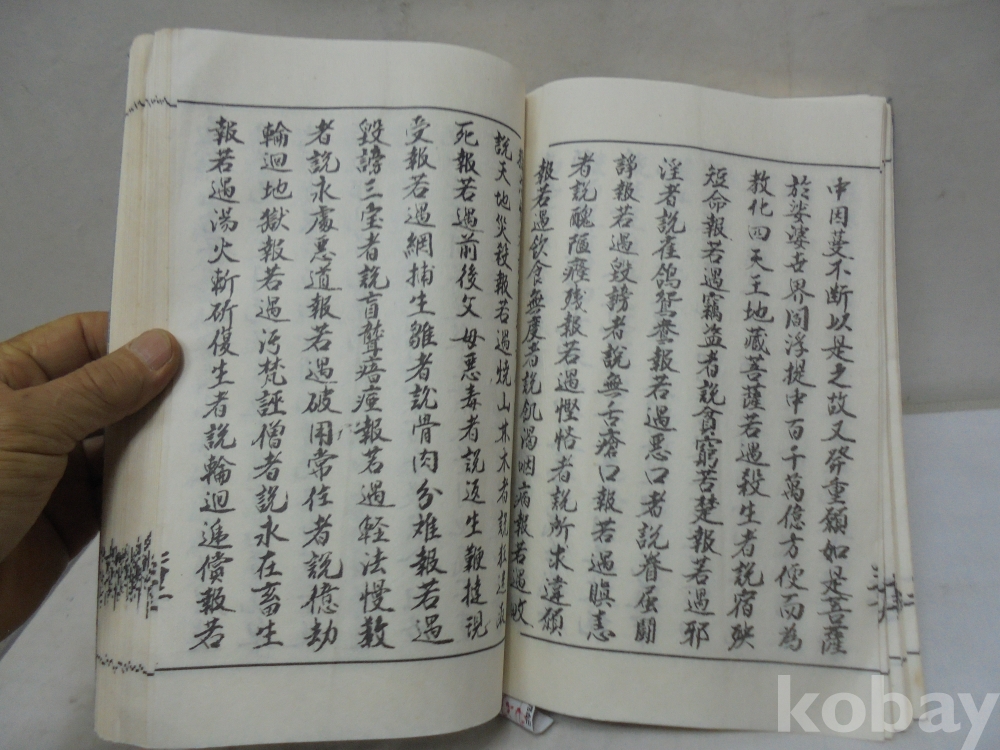 中因蔓不斷以是之故又發重願如是菩薩
於娑婆世界閻浮提中百千萬億方便而為
教化四天王地藏菩薩若遇殺生者說宿殃
短命報若遇竊盜者說貧窮苦楚報若遇邪
淫者說雀鴿鴛鴦報若遇惡口者說眷屬鬪
諍報若遇毀謗者說無舌瘡口報若遇瞋恚
者說醜陋癃殘報若遇慳悋者說所求違願
報若遇飲食無度者說飢渴咽病報若遇畋
說天地災殺報若遇燒山林木者說狂迷取
死報若遇前後父母惡毒者說返生鞭撻現
受報若遇網捕生雛者說骨肉分離報若遇
毀謗三寶者說盲聾瘖瘂報若遇輕法慢教
者說永處惡道報若遇破用常住者說億劫
輪迴地獄報若遇汚梵誣僧者說永在畜生
報若遇湯火斬斫傷生者說輪迴遞償報若
kobay